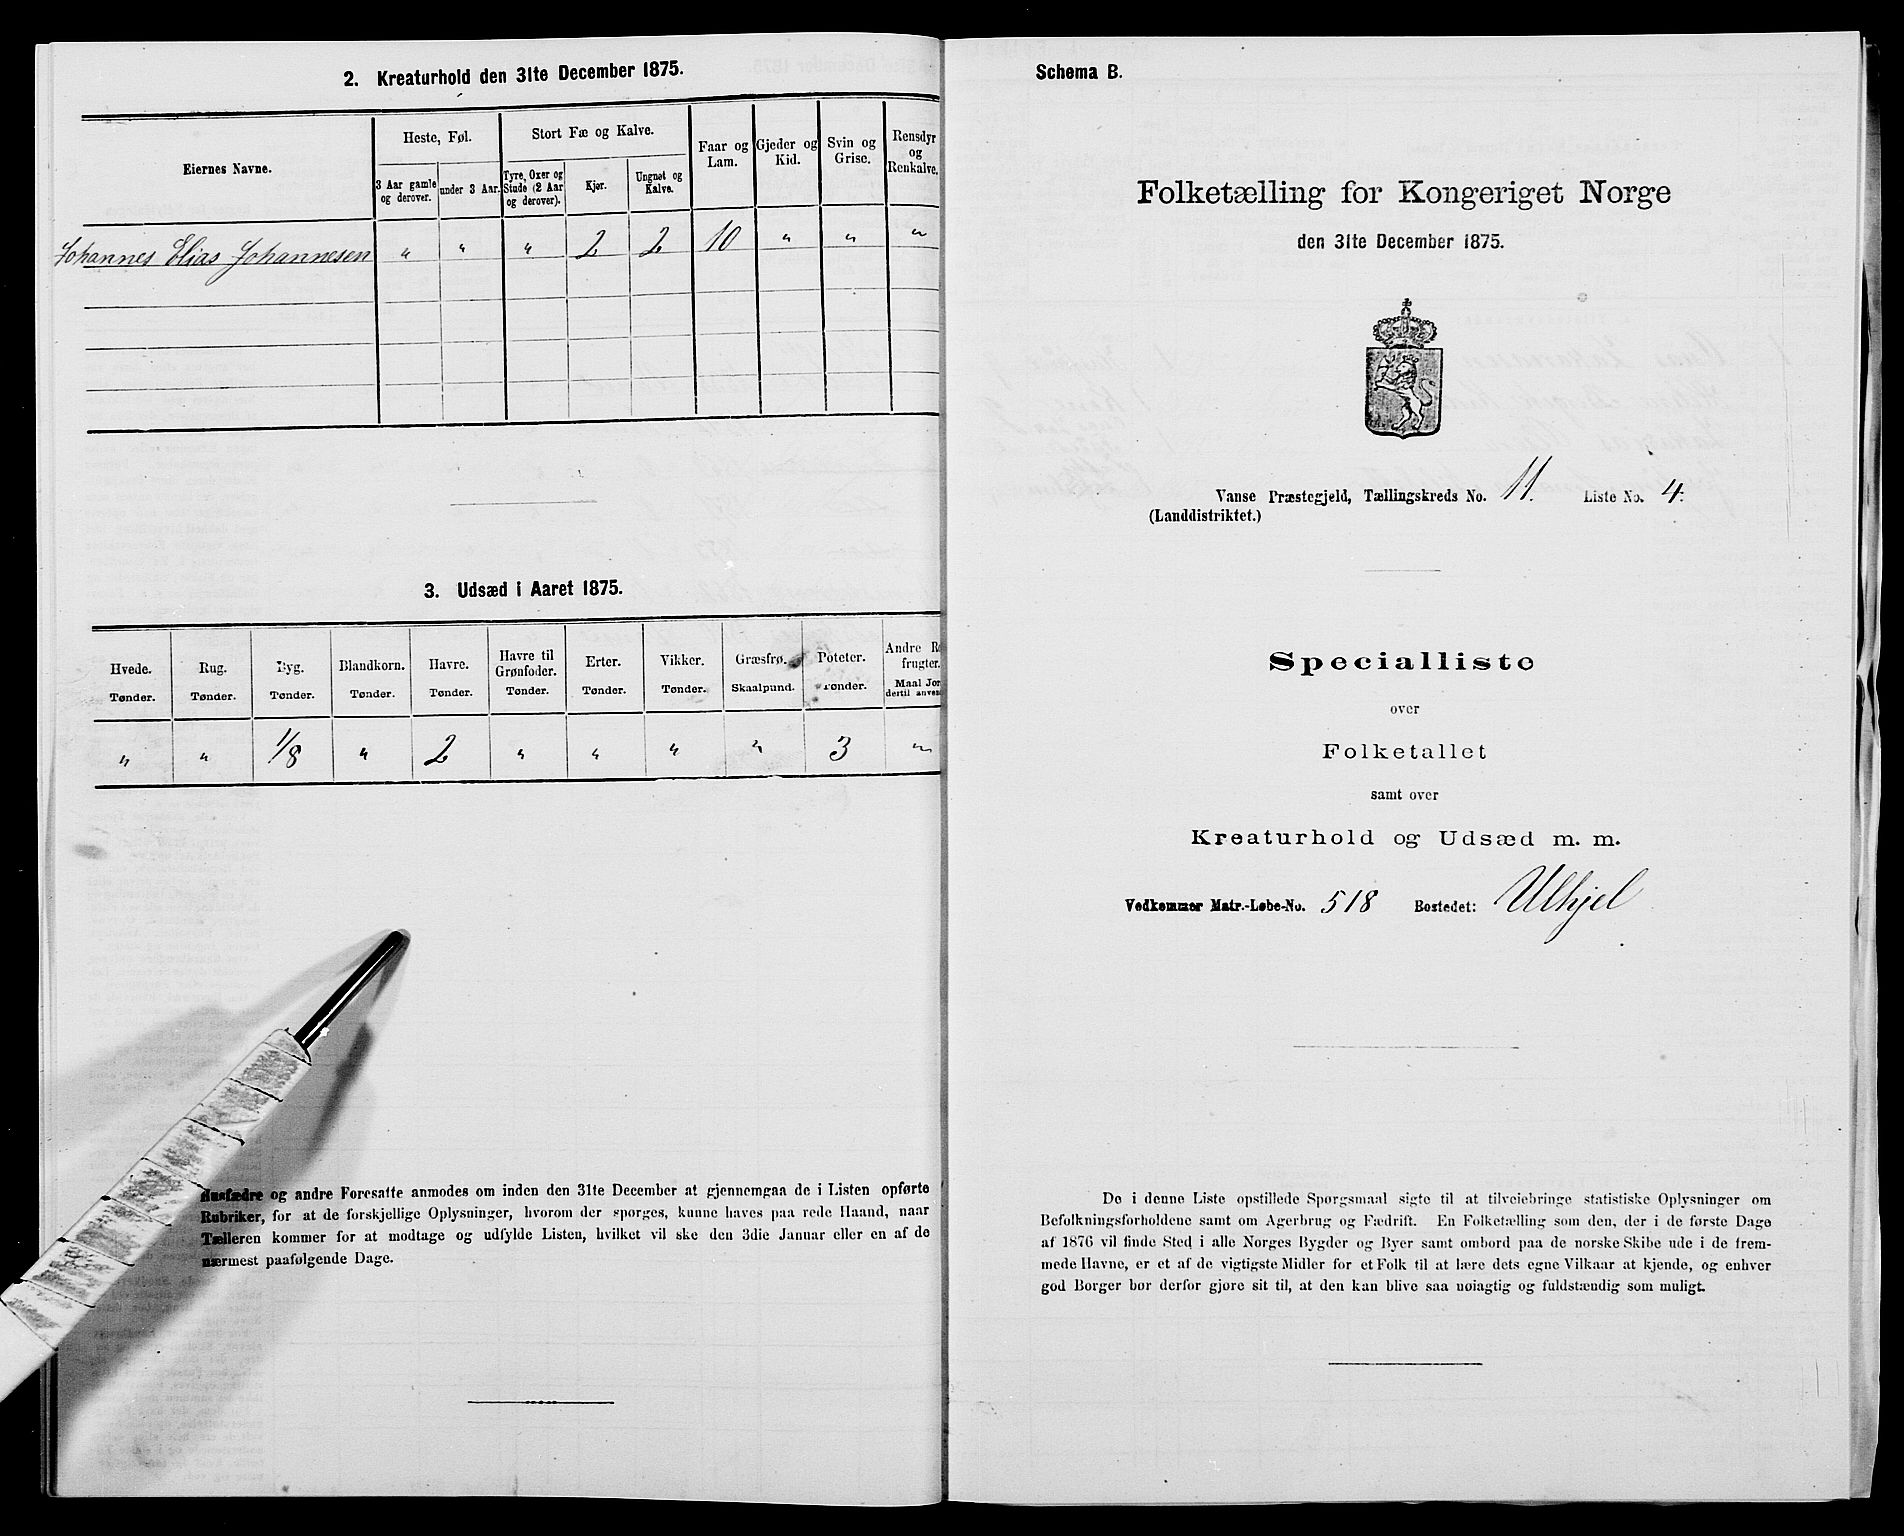 2. Kreaturhold den 31te December 1875.
Eiernes Navne.
Heste, Føl.
Stort Fæ og Kalve.
Faar og Lam.
Gjeder og Kid.
Svin og Grise.
Rensdyr og Renkalve.
3 Aar gamle og derover.
under 3 Aar.
Tyre, Oxer og Stude (2 Aar og derover).
Kjør.
Ungnøt og Kalve.
Johannes Elias Johannesen " " " 2 2 10 " " "
3. Udsæd i Aaret 1875.
Hvede. Rug. Byg. Blandkorn. Havre. Havre til Grønfoder. Erter. Vikker. Græsfrø. Poteter. Andre
frugter.
Tønder. Tønder. Tønder. Tønder. Tønder. Tønder. Tønder. Tønder. Skaalpund. Tønder. Maal
dertil
" " 1/8 " 2 " " " " 3 "
Husfædre og andre Foresatte anmodes om inden den 31te December at gjennemgaa de i Listen opførte
Rubriker, for at de forskjellige Oplysninger, hvorom der spørges, kunne haves paa rede Haand, naar
Tælleren kommer for at modtage og udfylde Listen, hvilket vil ske den 3die Januar eller en af de
nærmest paafølgende Dage.
Schema B.
Folketælling for Kongeriget Norge
den 31te December 1875.
Vanse Præstegjeld, Tællingskreds No. 11. Liste No. 4.
(Landdistriktet.)
Specialliste
over
Folketallet
samt over
Kreaturhold og Udsæd m. m.
Vedkommer Matr.-Løbe-No. 518 Bostedet: Ulhjel
De i denne Liste opstillede Spørgsmaal sigte til at tilveiebringe statistiske Oplysninger om
Befolkningsforholdene samt om Agerbrug og Fædrift. En Folketælling som den, der i de første Dage
af 1876 vil finde Sted i alle Norges Bygder og Byer samt ombord paa de norske Skibe ude i de frem-
mede Havne, er et af de vigtigste Midler for et Folk til at lære dets egne Vilkaar at kjende, og enhver
god Borger bør derfor gjøre sit til, at den kan blive saa nøiagtig og fuldstændig som muligt.